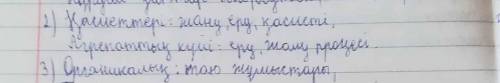 2) Қасиеттер: жану, еру, қасиеті,
Агрегаттық күйі: еру, жану процесі.
3) Органикалық: тою жұмыстары,